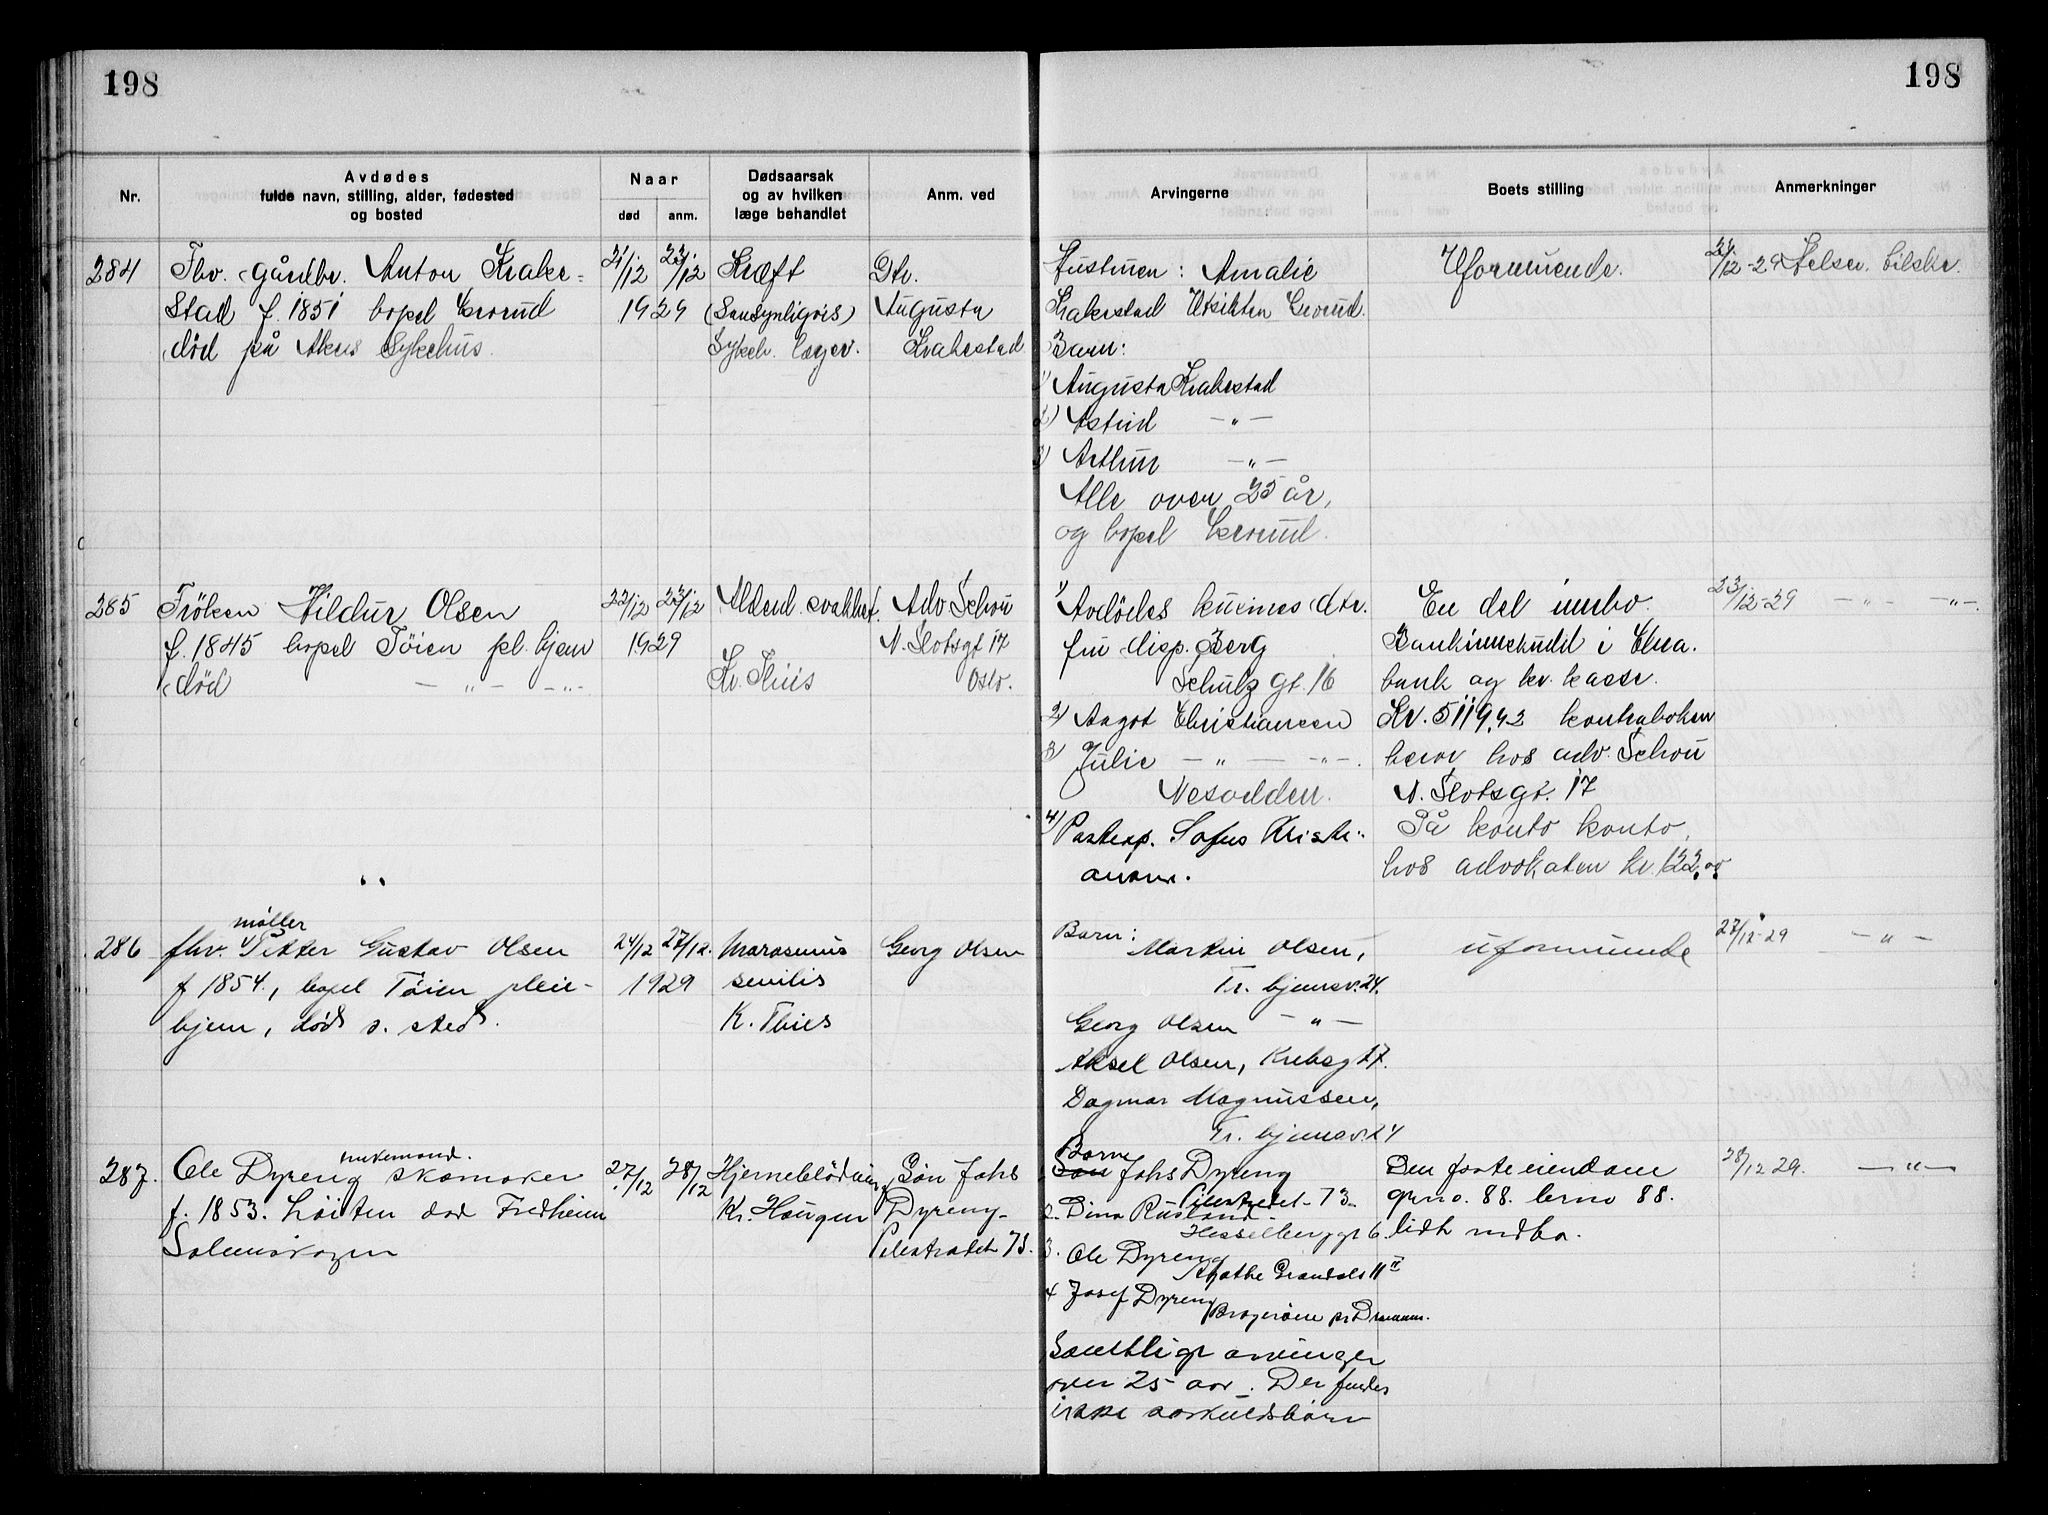 198
198
Nr.
Avdødes
fulde navn, stilling, alder, fødested
og bosted
Naar
død
anm.
Dødsaarsak
og av hvilken
læge behandlet
Anm. ved
Arvingerne
Boets stilling
Anmerkninger
284
Fhv. gårdbr. Anton Krake-
stad f. 1851 bopel Grorud
død på Akers Sykehus.
21/12 23/12
1929
Kræft
(Sansynligvis)
Sykeh. læger.
Dtr.
Augusta
Krakestad
Hustruen: Amalie
Krakestad Utsikten Grorud.
Barn:
1) Augusta Krakestad
2) Astrid —"—
3) Arthur —"—
Alle over 25 år,
og bopel Grorud.
Uformuende.
23/12-29
285
Frøken Hildur Olsen
f. 1845 bopel Tøien pl. hjem
død —"— —"—
22/12 23/12
1929
Alderd. svakhet.
Adv Schou
N. Slotsgt 17
Oslo.
1) Avdødes kusines dtr.
fru disp. Berg
Schulz gt. 16
2) Aagot Christiansen
3) Julie —"— —"—.
Nesodden.
4) Postexp. Sofus Kristi-
En del innbo.
Bankinnskudd i
bank og kasse.
Kr. 5119,42 kontraboken
bero hos adv. Schou
N. Slotsgt. 17
På konto konto,
hos advokaten kr. 122,00.
23/12-29 —"— —"—.
286
fhv. møller Petter Gustav Olsen
f 1854, bopel Tøien pleie-
hjem, død s. sted.
24/12 27/12.
1929
Marasmus
senilis
K. Thies
Georg Olsen
Barn:
Martin Olsen,
Tr. hjemsv. 24.
Georg Olsen —"—
Aksel Olsen, Krebsg 17.
Dagmar Magnussen,
Tr. hjemsv. 24
uformuende
27/12-29 —"—
287.
enkemand.
Ole Dyreng skomaker
f. 1853. Løiten død Fredheim
27/12 28/12
Hjerneblödning
Kr. Haugen
Søn Johs
Dyreng-
Pilestredet 73.
Barn
1. Johs Dyreng
Pilestredet 73.
2. Dina Rusland
Hesselberggt 6.
3. Ole Dyreng
Agathe Grøndals 11
4 Josef Dyreng
Bragerøen pr Drammen.
Samtlige arvinger
over 25 aar. Der findes
ikke særkuldsbørn
Den faste eiendom
grno. 88. brno 88.
lidt indbo.
28/12 29. —"—